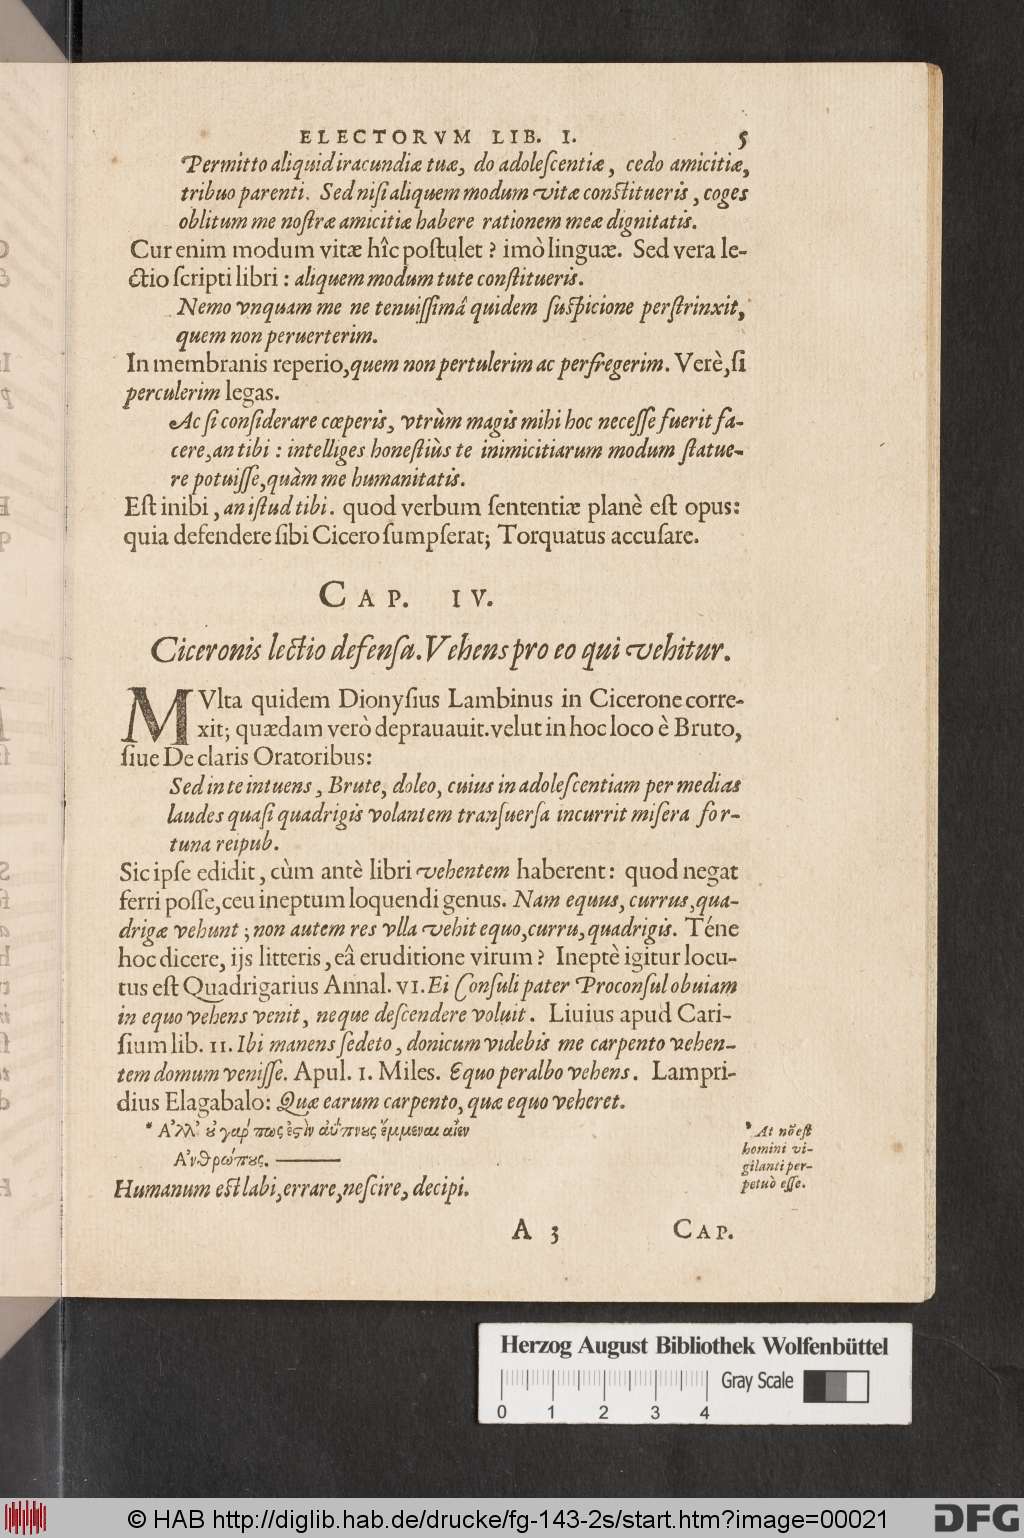 ELECTORVM LIB. I. 5
Permitto aliquid iracundiæ tuæ, do adoleſcentiæ, cedo amicitiæ,
tribuo parenti. Sed niſi aliquem modum vitæ conſtitueris, coges
oblitum me noſtræ amicitiæ habere rationem meæ dignitatis.
Cur enim modum vitæ hîc poſtulet? imò linguæ. Sed vera le-
ctio ſcripti libri: aliquem modum tute conſtitueris.
Nemo vnquam me ne tenuiſſimâ quidem ſuſpicione perſtrinxit,
quem non peruerterim.
In membranis reperio, quem non pertulerim ac perfregerim. Verè, ſi
perculerim legas.
Ac ſi conſiderare cœperis, vtrùm magis mihi hoc neceſſe fuerit fa-
cere, an tibi: intelliges honeſtiùs te inimicitiarum modum ſtatue-
re potuiſſe, quàm me humanitatis.
Eſt inibi, an iſtud tibi. quod verbum ſententiæ planè eſt opus:
quia defendere ſibi Cicero ſumpſerat; Torquatus accuſare.
CAP. IV.
Ciceronis lectio defenſa. Vehens pro eo qui vehitur.
MVlta quidem Dionyſius Lambinus in Cicerone corre-
xit; quædam verò deprauauit. velut in hoc loco è Bruto,
ſiue De claris Oratoribus:
Sed in te intuens, Brute, doleo, cuius in adoleſcentiam per medias
laudes quaſi quadrigis volantem tranſuerſa incurrit miſera for-
tuna reipub.
Sic ipſe edidit, cùm antè libri vehentem haberent: quod negat
ferri poſſe, ceu ineptum loquendi genus. Nam equus, currus, qua-
drigæ vehunt; non autem res vlla vehit equo, curru, quadrigis. Téne
hoc dicere, ijs litteris, eâ eruditione virum? Ineptè igitur locu-
tus eſt Quadrigarius Annal. VI. Ei Conſuli pater Proconſul obuiam
in equo vehens venit, neque deſcendere voluit. Liuius apud Cari-
ſium lib. II. Ibi manens ſedeto, donicum videbis me carpento vehen-
tem domum veniſſe. Apul. I. Miles. Equo peralbo vehens. Lampri-
dius Elagabalo: Quæ earum carpento, quæ equo veheret.
* Ἀλλ' ȣ γάρ πως ἐςὶν ἀΰπνȣς ἔμμεναι αἰὲν
Ἀνθρώπȣς. ———
* At nõ eſt
homini vi-
gilanti per-
petuò eſſe.
Humanum eſt labi, errare, neſcire, decipi.
A 3 CAP.
Herzog August Bibliothek Wolfenbüttel
Gray Scale
0 1 2 3 4
© HAB http://diglib.hab.de/drucke/fg-143-2s/start.htm?image=00021
DFG